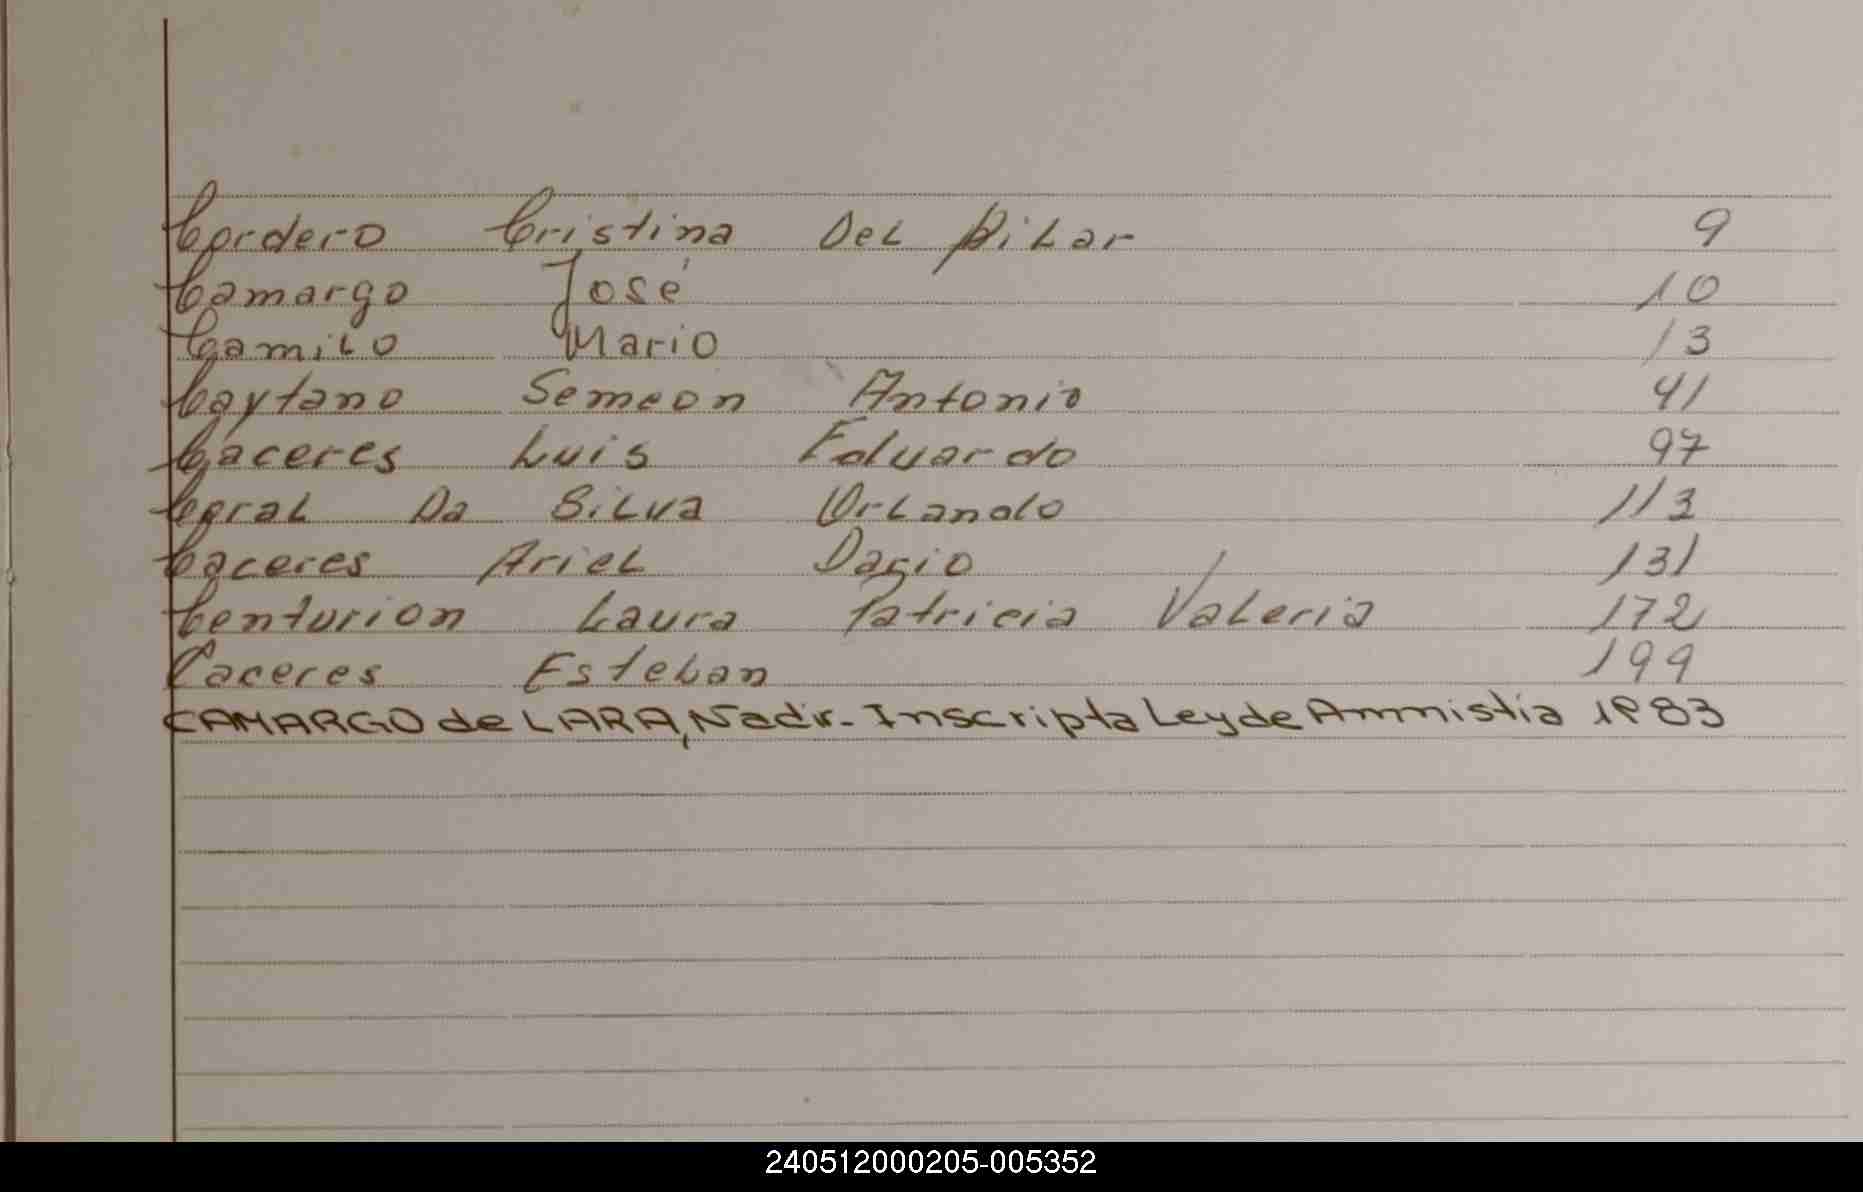 Cordero Cristina Del Pilar 9
Camargo José 10
Camilo Mario 13
Caytano Semeon Antonio 41
Caceres Luis Eduardo 97
Da Silva Orlando 113
Caceres Ariel Dario 131
Centurion Laura Patricia Valeria 172
Caceres Esteban 199
CAMARGO de LARA, Nadir - Inscripta Ley de Amnistia 1983
240512000205-005352